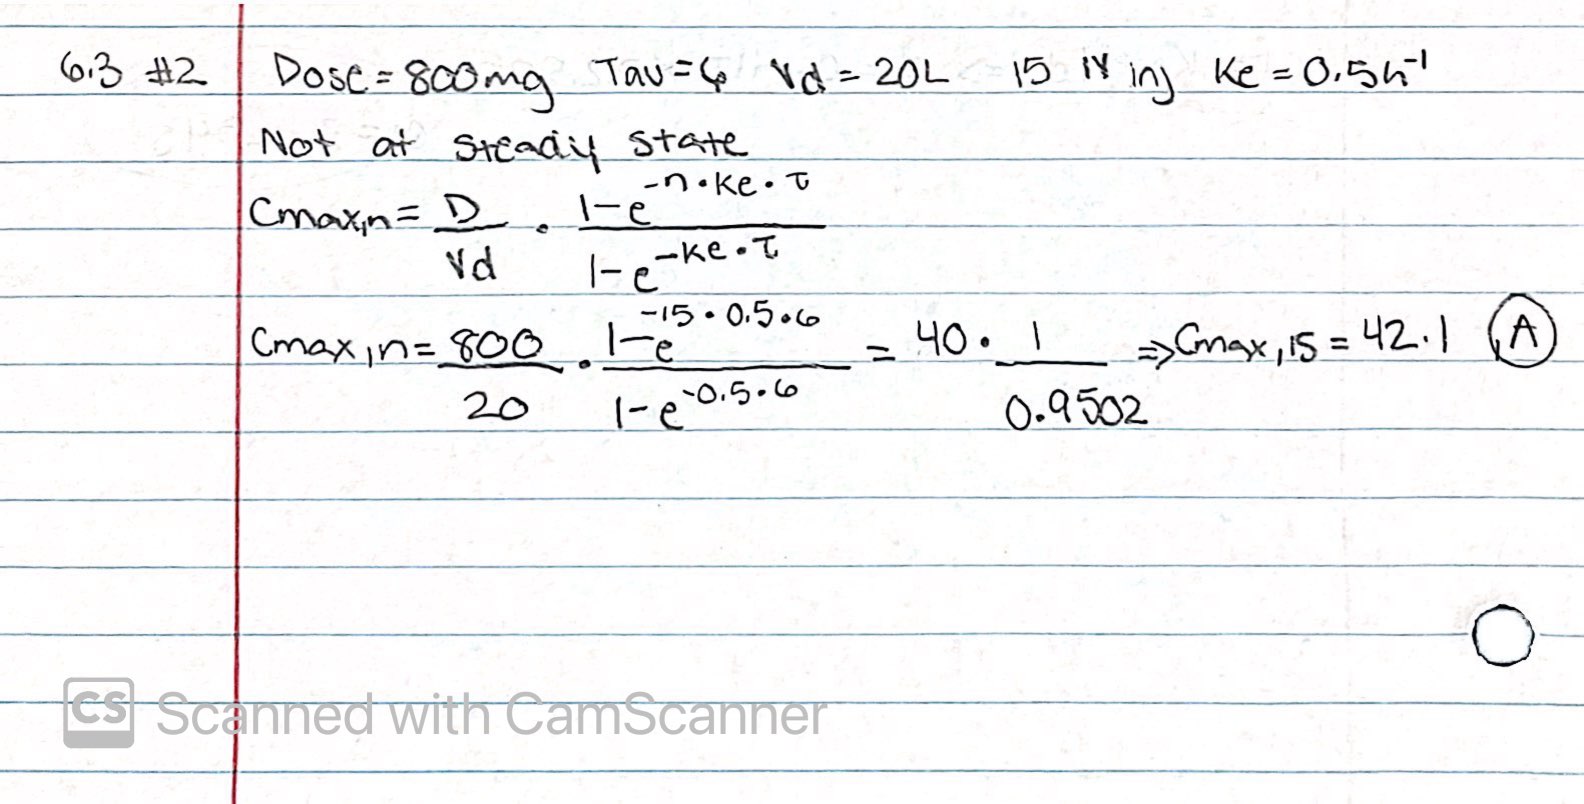 6.3 #2 Dose = 800mg Tau = 6 Vd = 20L 15 IV inj Ke = 0.5h⁻¹
Not at steady state
Cmax,n = D/Vd · (1-e^(-n·Ke·τ))/(1-e^(-Ke·τ))
Cmax,n = 800/20 · (1-e^(-15·0.5·6))/(1-e^(-0.5·6)) = 40 · 1/0.9502 ⇒ Cmax,15 = 42.1 A
CS Scanned with CamScanner